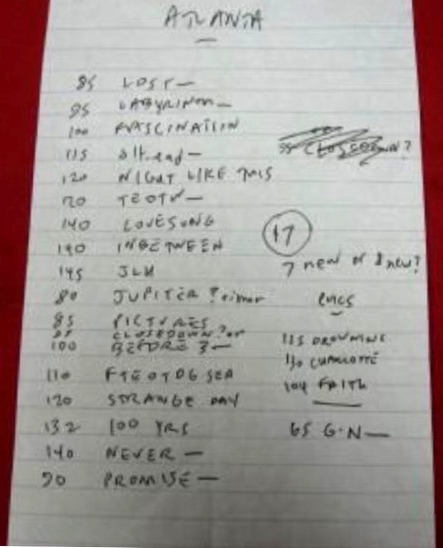 ATLANTA
85 LOST —
95 LABYRINTH —
100 FASCINATION
115 alt.end —
120 NIGHT LIKE THIS
120 TEOTW —
140 LOVESONG
140 INBETWEEN
145 JLH
80 JUPITER ? either
85 PICTURES
85 CLOSEDOWN? or
100 BEFORE 3 —
110 FTEOTDGSEA
120 STRANGE DAY
132 100 YRS
140 NEVER —
90 PROMISE —
CLOSEDOWN?
17
7 new or 8 new?
ENCS
115 DROWNING
130 CHARLOTTE
104 FAITH
65 G.N —